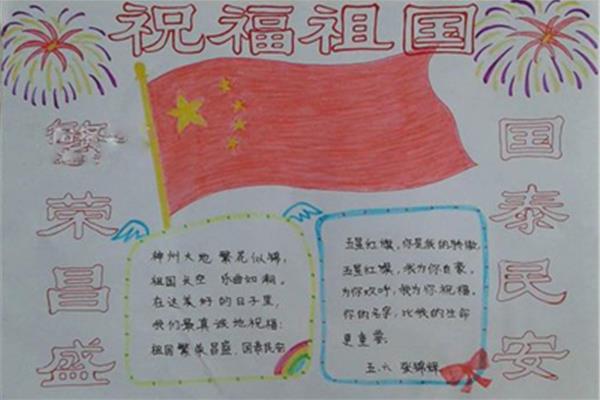 祝福祖国
繁荣昌盛
国泰民安
神州大地 繁花似锦,
祖国长空 乐曲如潮。
在这美好的日子里,
我们最真诚地祝福:
祖国繁荣昌盛、国泰民安
五星红旗,你是我的骄傲,
五星红旗,我为你自豪。
为你欢呼,我为你祝福。
你的名字,比我的生命
更重要。
五.六 张锦辉